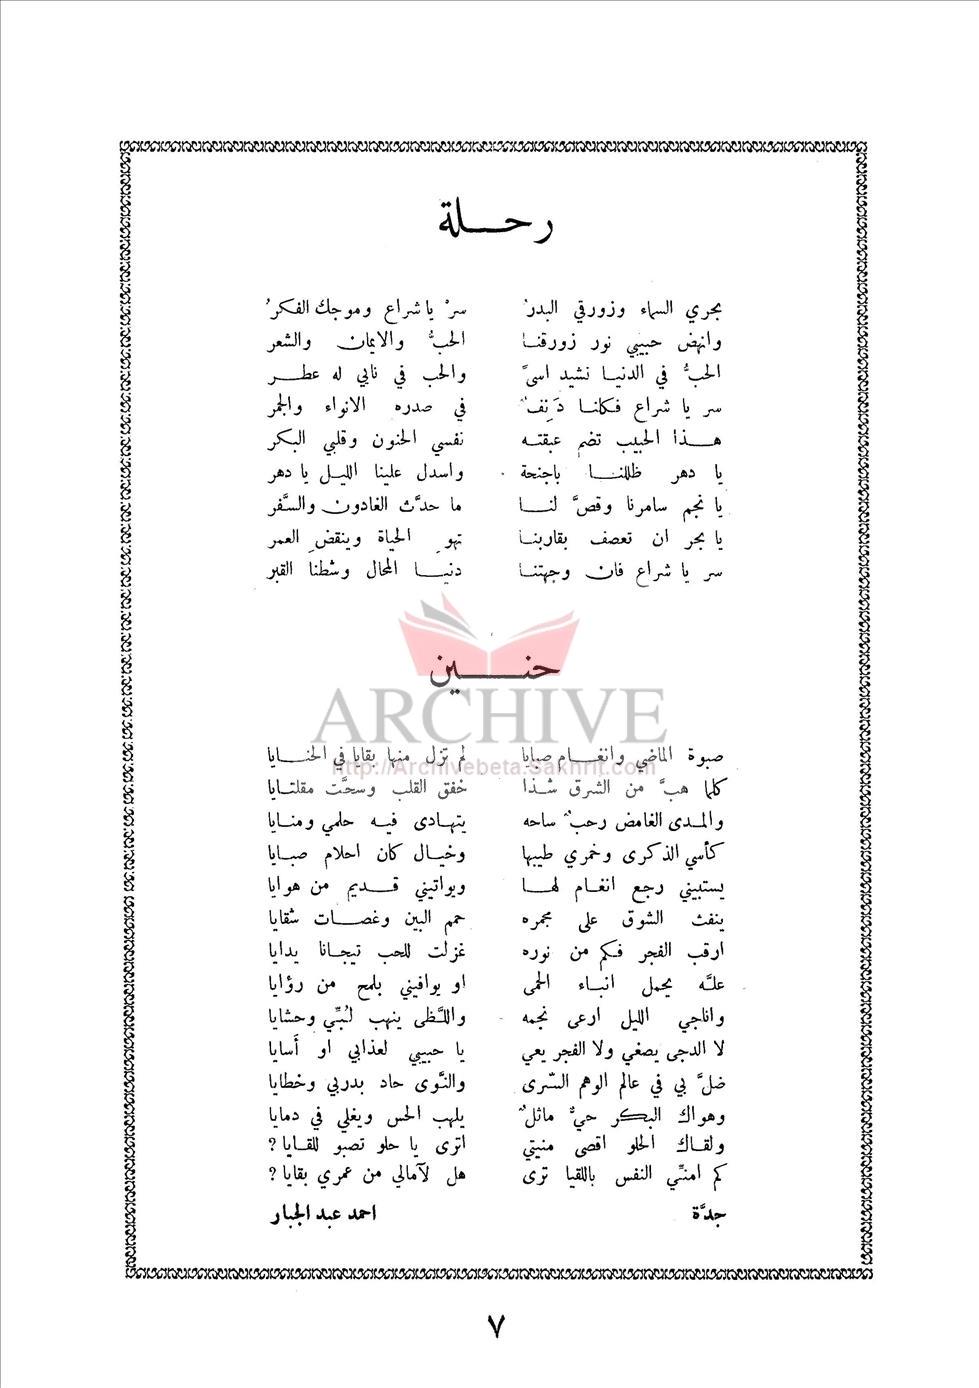 رحلة
بحري السماء وزورقي البدرُ سرْ يا شراع وموجك الفكرُ
وانهض حبيبي نور زورقنا الحبُّ والايمان والشعر
الحبُّ في الدنيا نشيد اسىً والحب في نابي له عطر
سر يا شراع فكلنا دَنِفٌ في صدره الانواء والجمر
هذا الحبيب تضم عبقته نفسي الحنون وقلبي البكر
يا دهر ظللنا باجنحة واسدل علينا الليل يا دهر
يا نجم سامرنا وقصَّ لنا ما حدَّث الغادون والسَّفر
يا بحر ان تعصف بقاربنا تهوِ الحياة وينقضِ العمر
سر يا شراع فان وجهتنا دنيا المحال وشطنا القبر
حنين
ARCHIVE
http://Archivebeta.Sakhrit.com
صبوة الماضي وانغام صبايا لم تزل منها بقايا في الحنايا
كلما هبَّ من الشرق شذا خفق القلب وسحَّت مقلتايا
والمدى الغامض رحبٌ ساحه يتهادى فيه حلمي ومنايا
كأسي الذكرى وخمري طيبها وخيال كان احلام صبايا
يستبيني رجع انغام لها ويواتيني قديم من هوايا
ينفث الشوق على مجمره حمم البين وغصات شقايا
ارقب الفجر فكم من نوره غزلت للحب تيجانا يدايا
علَّه يحمل انباء الحمى او يوافيني بلمح من رؤايا
واناجي الليل ارعى نجمه واللَّظى ينهب لُبِّي وحشايا
لا الدجى يصغي ولا الفجر يعي يا حبيبي لعذابي او أسايا
ضلَّ بي في عالم الوهم السّرى والنَّوى حاد بدربي وخطايا
وهواك البكر حيٌّ ماثلٌ يلهب الحس ويغلي في دمايا
ولقاك الحلو اقصى منيتي اترى يا حلو تصبو للقايا ؟
كم امنِّي النفس باللقيا ترى هل لآمالي من عمري بقايا ؟
جدَّة احمد عبد الجبار
٧